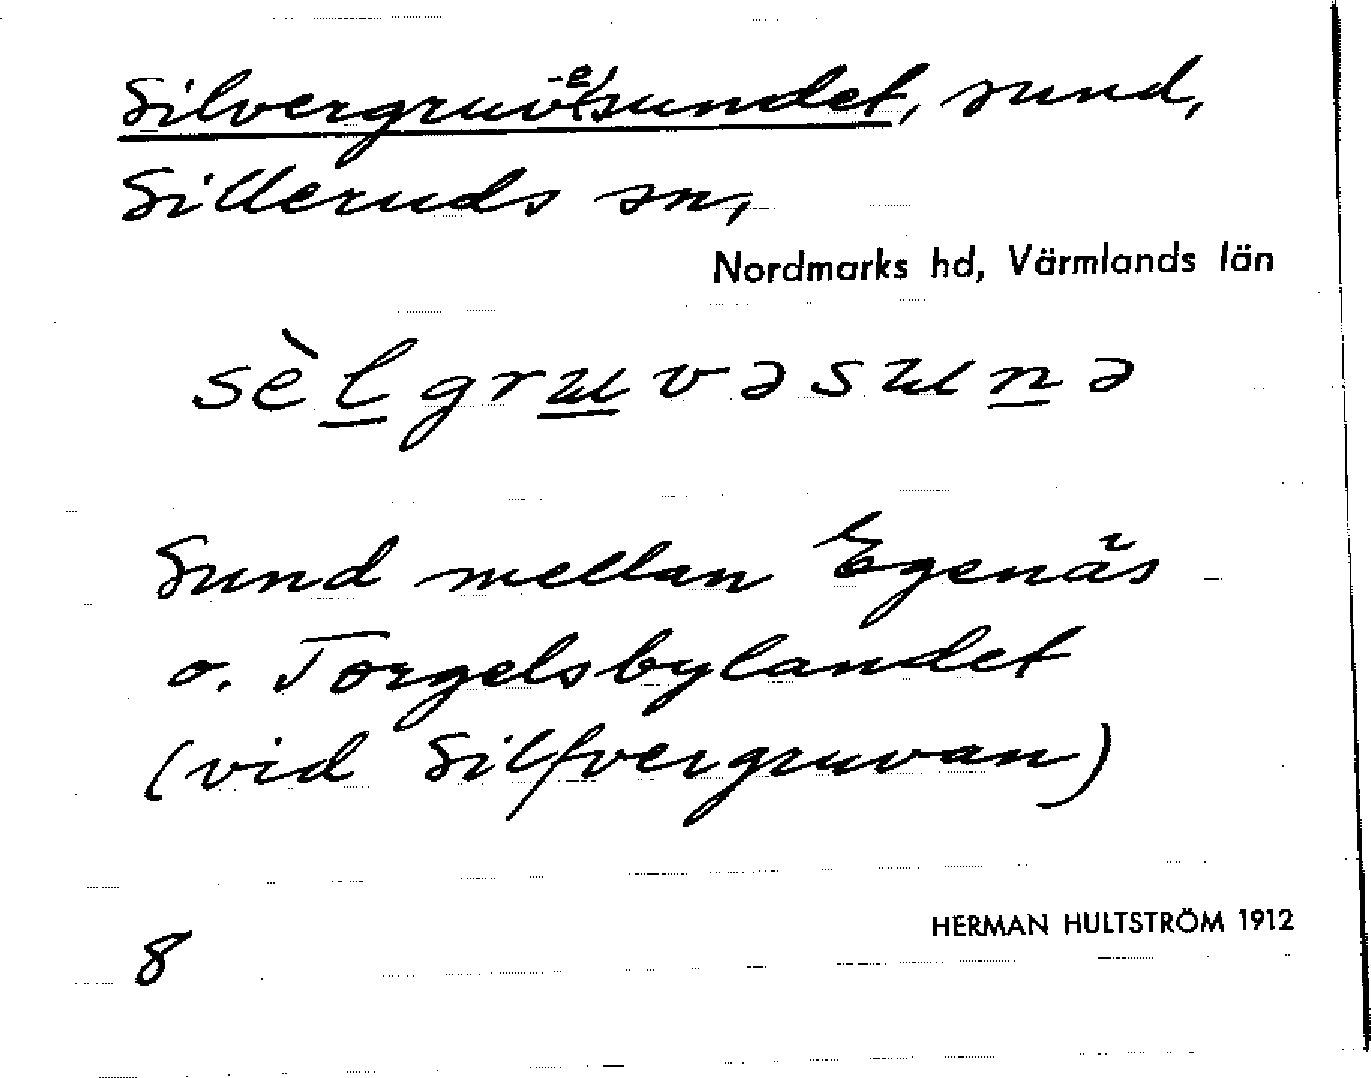 Silvergruv(-e)sundet, sund,
Silleruds sn,
Nordmarks hd, Värmlands län
sèlgruvəsunə
Sund mellan Egenäs
o. Torgelsbylandet
(vid Silfvergruvan)
HERMAN HULTSTRÖM 1912
8